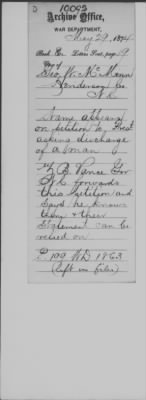 10095
Archive Office,
WAR DEPARTMENT,
May 29, 1874
Book E. Letters Sent, page 9
Copy of
Geo. W. McMinn
Henderson Co
N.C.
Name appears
on petition to Prest
asking discharge
of a man
Z B Vance Gov
N.C. forwards
this petition and
says he knows
them & their
statements can be
relied on
P 199 WD 1863
(left in files)